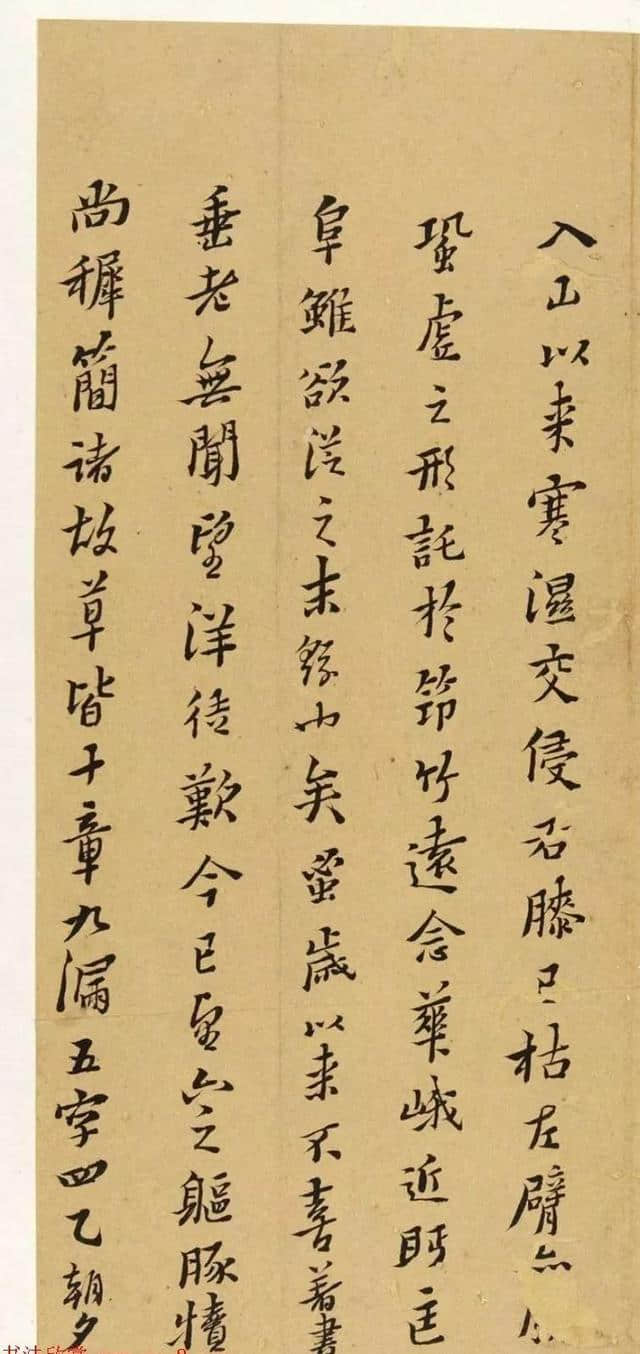 入山以来寒濕交侵右膝已枯左臂亦
蛩虛之形託於筇竹遠念華峨近眄匡
阜雖欲從之末繇也矣蚤歲以来不喜著書
垂老無聞望洋徒歎今已望六之軀豚犢
尚穉簡諸故草皆十章九漏五字四乙朝夕